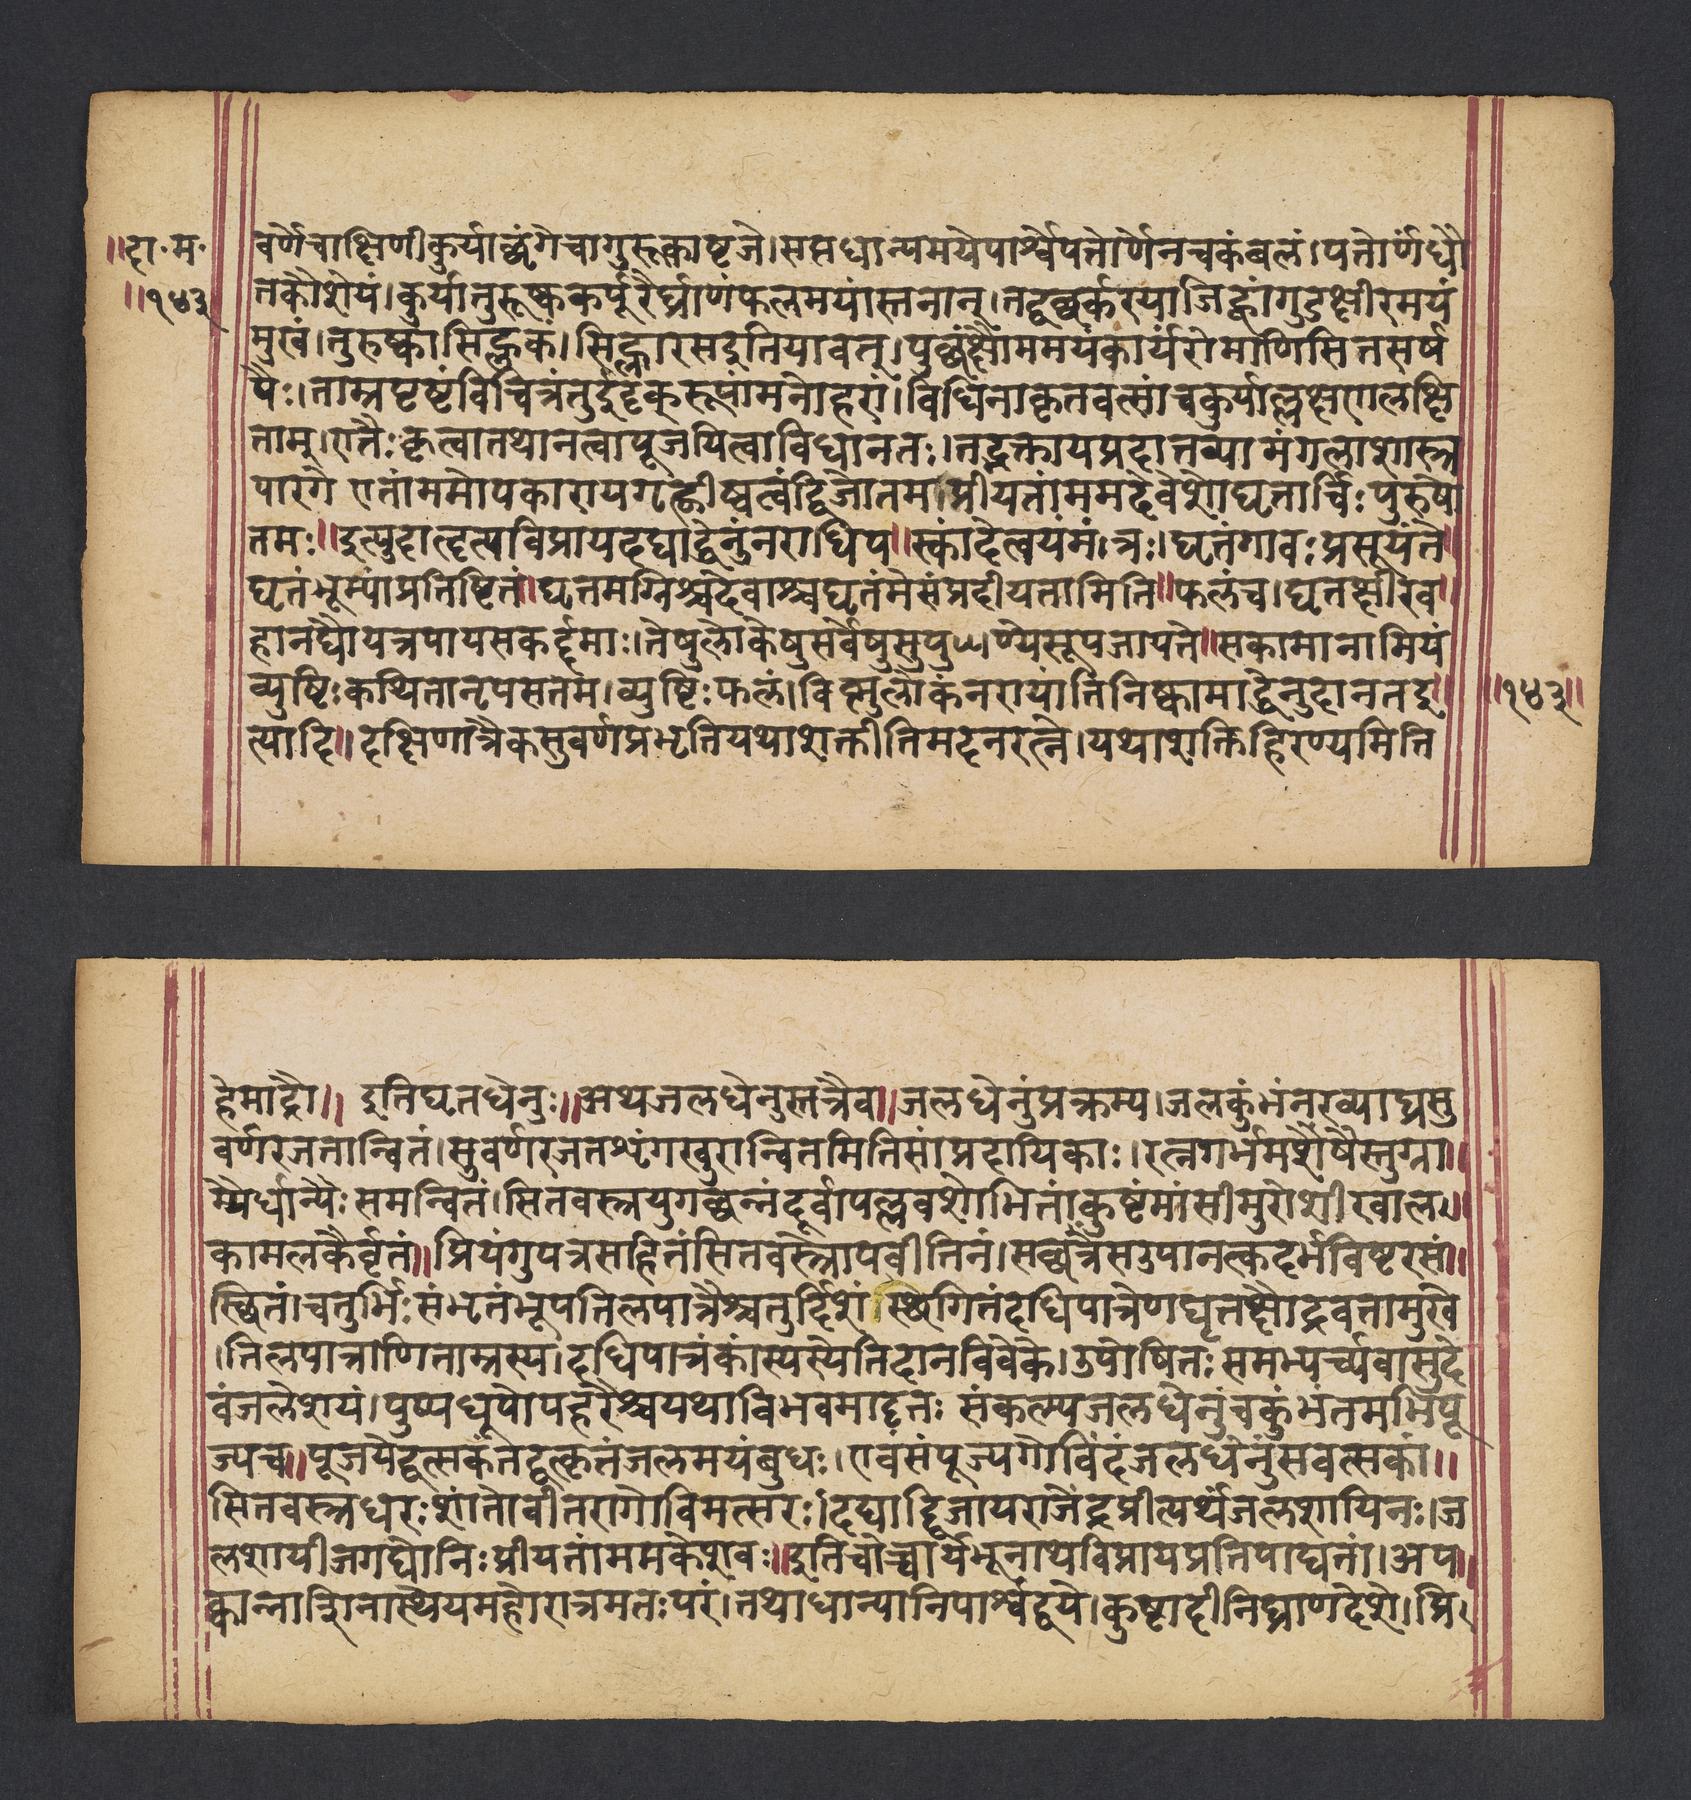 ॥दा॰म॰
॥१४३
वर्णेचाक्षिणीकुर्याछृंगेचागुरूकाष्टजे।सप्तधान्यमयेपार्श्वेपत्तोर्णेनचकंबलं।पत्तोर्णंधौ
तकौशेयं।कुर्यात्तुरूष्ककर्पूरैर्घ्राणंफलमयांस्तनान्।तद्वछर्करयाजिह्वांगुडक्षीरमयं
मुखं।तुरुष्कासिह्लकं।सिह्लारसइतियावत्।पुछंक्षौममयंकार्यंरोमाणिसितसर्ष
पैः।ताम्रपृष्टंविचित्रंतुईदृक्रूपांमनोहरां।विधिनाकृतवत्सांचकुर्याल्लक्षणलक्षि
ताम्।एतैःकृत्वातथानत्वापूजयित्वाविधानतः।तद्भक्तायप्रदातव्यामंगलाशास्त्र
पारगे एतांममोपकारायगृह्णीष्वत्वंद्विजोत्तम।प्रीयतांममदेवेशोघृतार्चिःपुरुषो
त्तमः॥इत्युदाहृत्यविप्रायदद्याद्धेनुंनराधिप॥स्कांदेत्वयंमंत्रः।घृतंगावःप्रसूयंते॥
घृतंभूम्यांप्रतिष्टितं॥घृतमग्निश्चदेवाश्चघृतंमेसंप्रदीयतामिति॥फलंच।घृतक्षीरव॥
हानद्योयत्रपायसकर्द्दमाः।तेषुलोकेषुसर्वेषुसुपुण्येसूपजायते॥सकामानामियं
व्युष्टिःकथितानृपसत्तम।व्युष्टिःफलं।विष्णुलोकंनरायांतिनिष्कामाद्धेनुदानतइ॥
त्यादि॥दक्षिणात्रैकसुवर्णप्रभृतियथाशक्तीतिमदनरत्ने।यथाशक्तिहिरण्यमिति
॥१४३॥
हेमाद्रौ॥ इतिघृतधेनुः॥अथजलधेनुस्तत्रैव॥जलधेनुंप्रक्रम्य।जलकुंभंनरव्याघ्रसु
वर्णरजतान्वितं।सुवर्णरजतशृंगखुरान्वितमितिसांप्रदायिकाः।रत्नगर्भमशेषैस्तुग्रा॥
म्यैर्धान्यैःसमन्वितं।सितंवस्त्रयुगछन्नंदूर्वापल्लवशोभितांकुष्टंमांसीमुरोशीरवाल
कामलकैर्वृतं॥प्रियंगुपत्रसहितंसितवस्त्रोपवीतिनं।सछत्रंसउपानत्कंदर्भविष्टरसं॥
स्छितांचतुर्भिःसंभृतंभूपतिलपात्रैश्चतुर्दिशं।स्थगितंदधिपात्रेणघृतक्षौद्रवतामुखे
।तिलपात्राणिताम्रस्य।दधिपात्रंकांस्यस्येतिदानविवेके।उपोषितःसमभ्यर्च्यवासुदे
वंजलेशयं।पुष्पधूपोपहारैश्चयथाविभवमादृतः संकल्प्यजलधेनुंचकुंभंतमभिपू
ज्यच॥पूजयेद्वत्सकंतद्वत्कृतंजलमयंबुधः।एवंसंपूज्यगोविंदंजलधेनुंसवत्सकां॥
सितवस्त्रधरःशांतोवीतरागोविमत्सरः।दद्याद्विजायराजेंद्रप्रीत्यर्थंजलशायिनः।ज
लशायीजगद्योनिःप्रीयतांममकेशवः॥इतिचोच्चार्यभूनाथविप्रायप्रतिपाद्यतां।अप॥
क्वान्नाशिनास्थेयमहोरात्रमतःपरं।तथाधान्यानिपार्श्वद्वये।कुष्टादीनिघ्राणदेशे।प्रि